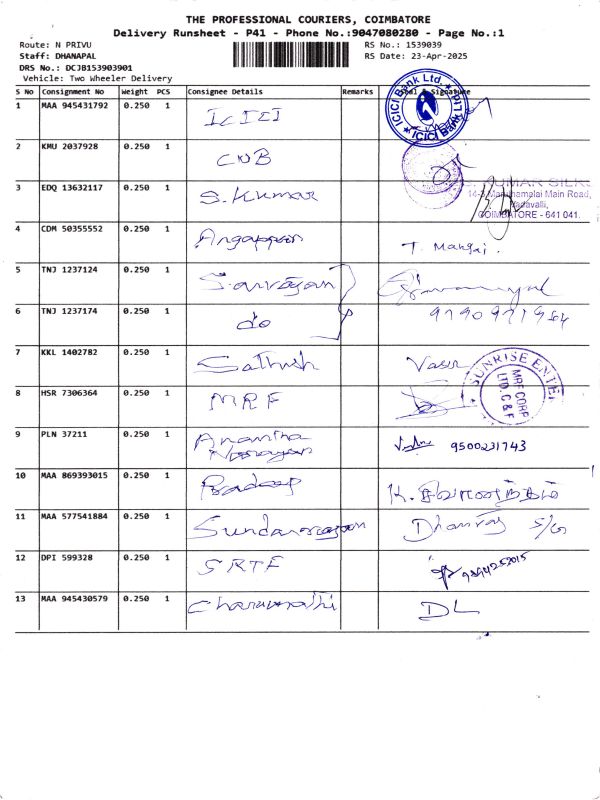 THE PROFESSIONAL COURIERS, COIMBATORE
Delivery Runsheet - P41 - Phone No.:9047080280 - Page No.:1
Route: N PRIVU
RS No.: 1539039
Staff: DHANAPAL
RS Date: 23-Apr-2025
DRS No.: DCJB153903901
Vehicle: Two Wheeler Delivery
S No Consignment No Weight PCS Consignee Details Remarks Signature
1 MAA 945431792 0.250 1 ICICI
ICICI Bank Ltd. ICICI Bank Ltd.
2 KMU 2037928 0.250 1 CUB
3 EDQ 13632117 0.250 1 S. Kumar
KUMAR SILKS
Main Road,
COIMBATORE - 641 041.
4 CDM 50355552 0.250 1 Angappan T. Mangai.
5 TNJ 1237124 0.250 1 Saravanan
6 TNJ 1237174 0.250 1 do
7 KKL 1402782 0.250 1 Sathish Vasu
SUNRISE ENTE
MRF CORP
LTD. C & F
8 HSR 7306364 0.250 1 MRF
9 PLN 37211 0.250 1 Anantha
Narayan 9500231743
10 MAA 869393015 0.250 1 Pradeep
11 MAA 577541884 0.250 1 Sundararajan Dhanraj S/G
12 DPI 599328 0.250 1 SRTF 9894252015
13 MAA 945430579 0.250 1 Charumathi DL